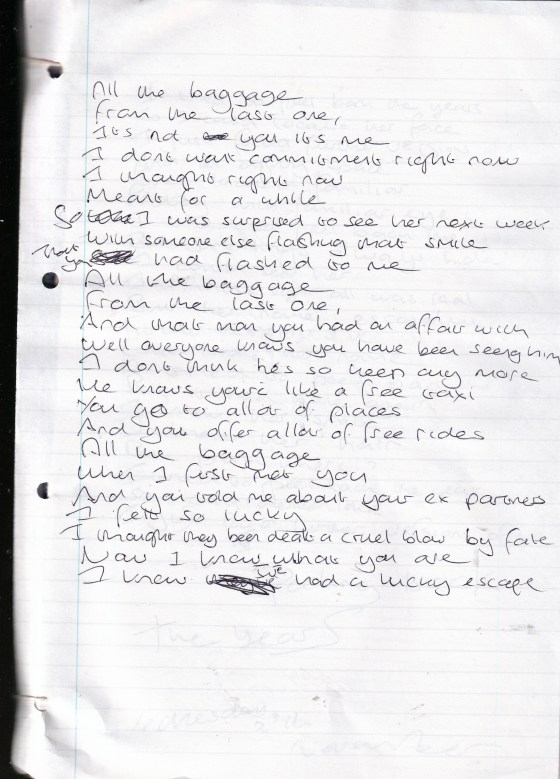 All the baggage
From the last one,
Its not you its me
I dont want commitment right now
I thought right now
Meant for a while
So I was surprised to see her next week
With someone else flashing that smile
that you had flashed to me
All the baggage
From the last one,
And that man you had an affair with
Well everyone knows you have been seeing him
I dont think hes so keen any more
He knows your like a free taxi
You go to allot of places
And you offer allot of free rides
All the baggage
When I first met you
And you told me about your ex partners
I felt so lucky
I thought they been dealt a cruel blow by fate
Now I know what you are
I know we had a lucky escape
the years